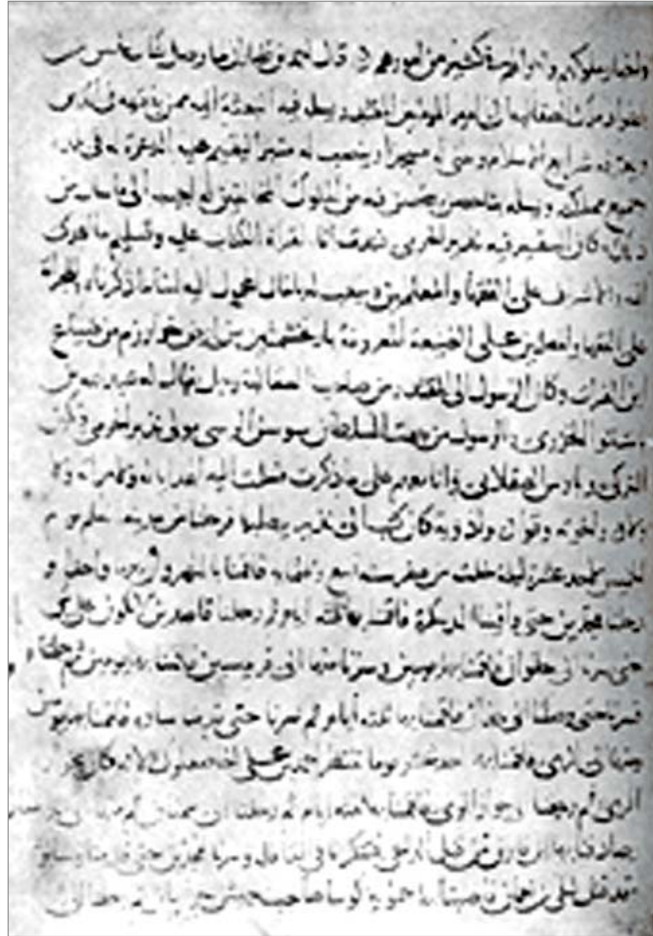 واخبار ملوكهم واحوالهم في كثير من امورهم قال احمد بن فضلان لما وصل كتاب
الصقالبة الى امير المومنين المقتدر يسله فيه البعثة اليه ممن يفقهه في الدين
ويعرفه شرايع الاسلام ويبنى له مسجدا وينصب له منبرا ليقيم عليه الدعوة له في بلده
جميع مملكته ويسله بنا حصن يتحصن فيه من الملوك المخالفين له اجيب الى ما سال من
ذلك وكان السفير فيه نذير الحرمى فندبت انا لقراة الكتاب عليه وتسليم ما اهدى
اليه والاشراف على الفقها والمعلمين وسبب له بالمال المحمول اليه لبنا ما ذكرناه وللجراية
على الفقها والمعلمين على الضيعة المعروفة من ارض خوارزم من ضياع
ابن الفرات وكان الرسول الى المقتدر من صاحب الصقالبة رجل يقال له عبد الله بن
باشتو الخزرى والرسول من جهة السلطان سوسن الرسى مولى نذير الحرمى وتكين
التركى وبارس الصقلابى وانا معهم على ما ذكرت فسلمت اليه الهدايا له ولامراته
واخوته وقواده وادوية كان كتب الى نذير يطلبها فرحلنا من مدينة السلم يوم
الخميس لاحدى عشرة ليلة خلت من صفر سنة تسع وثلثماية فاقمنا بالنهروان يوما واحدا و
رحلنا مجدين حتى وافينا الدسكرة فاقمنا بها ثلثة ايام ثم رحلنا قاصدين لا نلوى على شى
حتى صرنا الى حلوان فاقمنا بها يومين وسرنا منها الى قرميسين فاقمنا بها يومين ثم رحلنا
فسرنا حتى وصلنا الى همذان فاقمنا بها ثلثة ايام ثم سرنا حتى قدمنا ساوه فاقمنا بها يومين
ومنها الى الرى فاقمنا بها احد عشر يوما ننتظر احمد بن على اخا صعلوك لانه كان بخوار
الرى ثم رحلنا الى خوار الرى فاقمنا بها ثلثة ايام ثم رحلنا الى سمنان ثم منها الى
صادفنا بها ابن قارن من قبل الداعى فتنكرنا فى القافلة وسرنا مجدين حتى قدمنا نيسابور
وقد قتل ليلى بن نعمان فاصبنا بها حمويه كوسا صاحب جيش خراسان ثم رحلنا الى